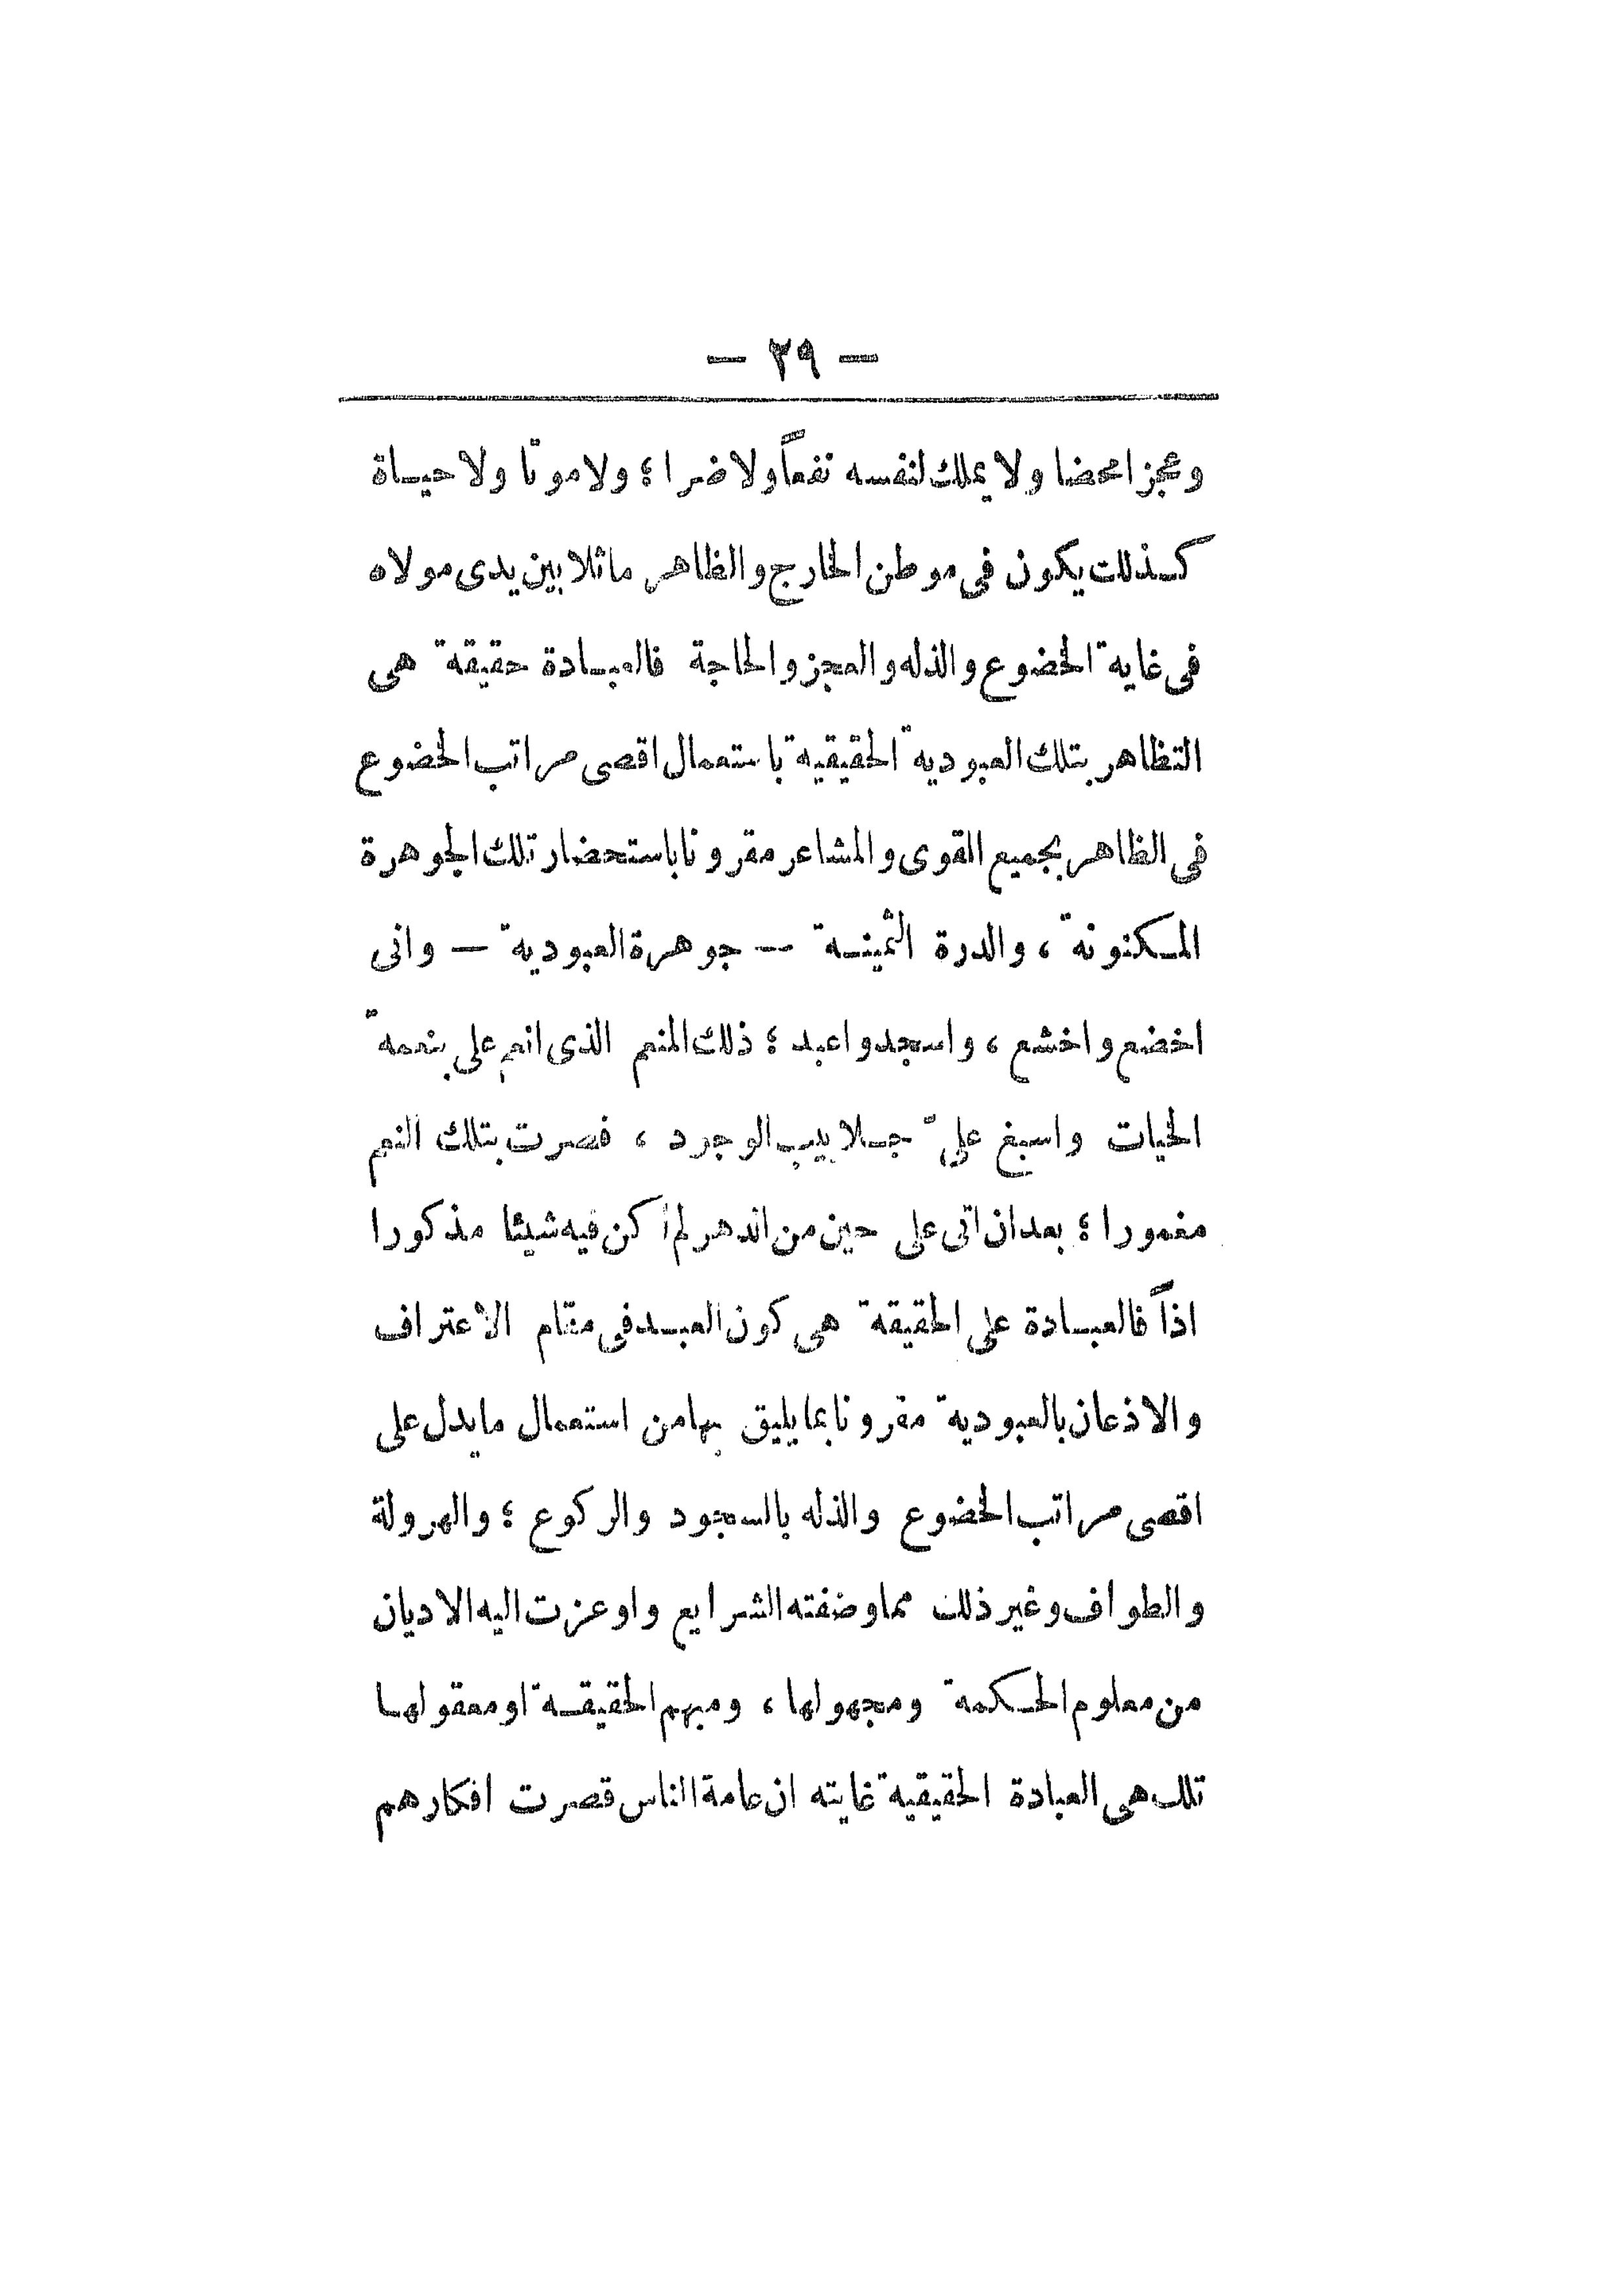 — ٢٩ —
وعجزا محضا ولا يملك لنفسه نفعاً ولا ضرا ؛ ولا موتا ولا حياة
كذلك يكون في موطن الخارج والظاهر ماثلا بين يدى مولاه
في غاية الخضوع والذله والعجز والحاجة فالعبادة حقيقة هي
التظاهر بتلك العبودية الحقيقية باستعمال اقصى مراتب الخضوع
في الظاهر بجميع القوى والمشاعر مقرونا باستحضار تلك الجوهرة
المكنونة ، والدرة الثمينة — جوهرة العبودية — وانى
اخضع واخشع ، واسجد واعبد ؛ ذلك المنعم الذى انعم على بنعمة
الحيات واسبغ علي جلابيب الوجود ، فصرت بتلك النعم
مغمورا ؛ بعد ان اتى على حين من الدهر لم أكن فيه شيئا مذكورا
اذاً فالعبادة على الحقيقة هي كون العبد في مقام الاعتراف
والاذعان بالعبودية مقرونا بما يليق بها من استعمال ما يدل على
اقصى مراتب الخضوع والذله بالسجود والركوع ؛ والهرولة
والطواف وغير ذلك مما وضفته الشرايع واوعزت اليه الاديان
من معلوم الحكمة ومجهولها ، ومبهم الحقيقة او معقولها
تلك هي العبادة الحقيقية غايته ان عامة الناس قصرت افكارهم